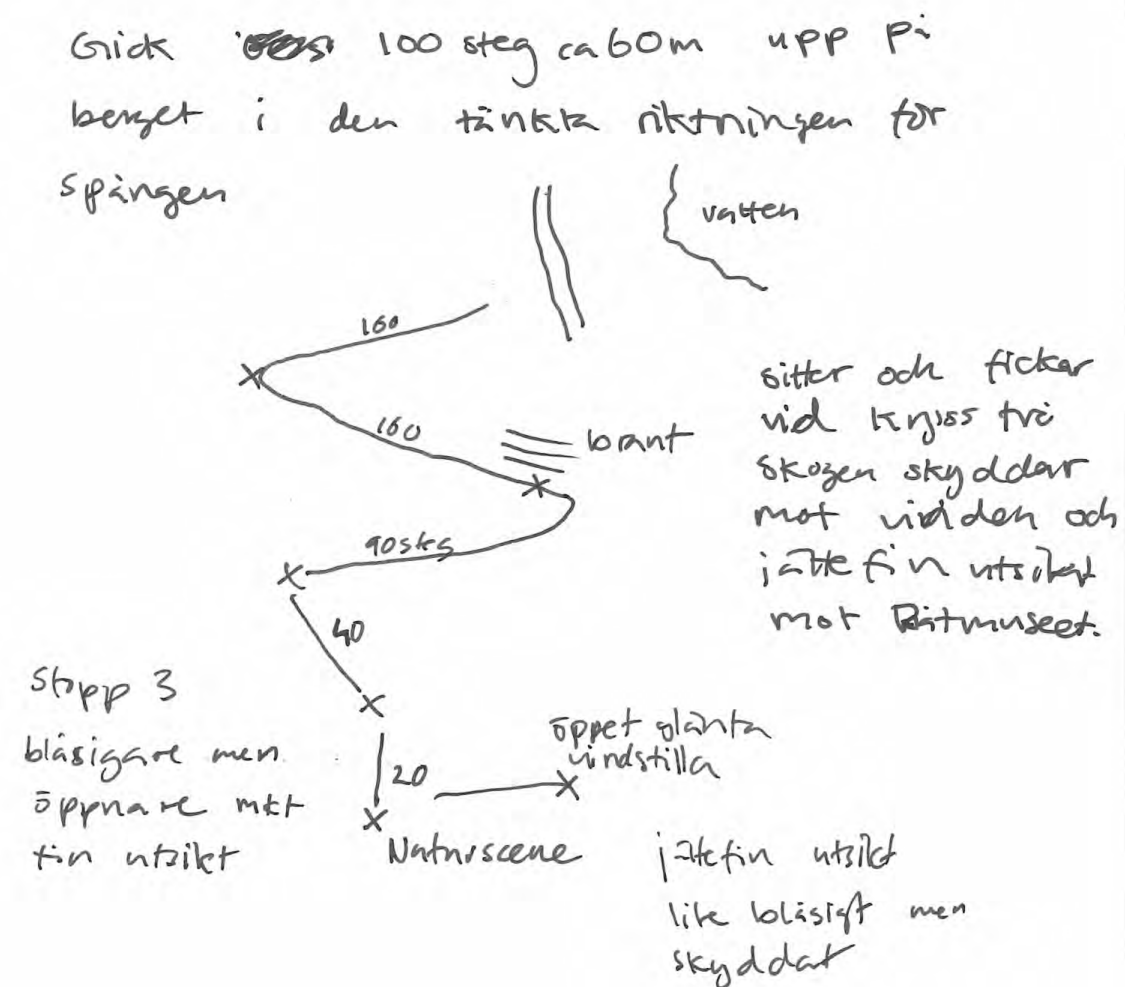 Gick 100 steg ca 60m upp på
berget i den tänkta riktningen för
spången
vatten
160
160
brant
sitter och fickar
vid kryss två
skogen skyddar
mot vinden och
jättefin utsikt
mot Båtmuseet.
90 steg
40
Stopp 3
blåsigare men
öppnare mkt
fin utsikt
20
öppet glänta
vindstilla
Naturscene
jättefin utsikt
lite blåsigt men
skyddat